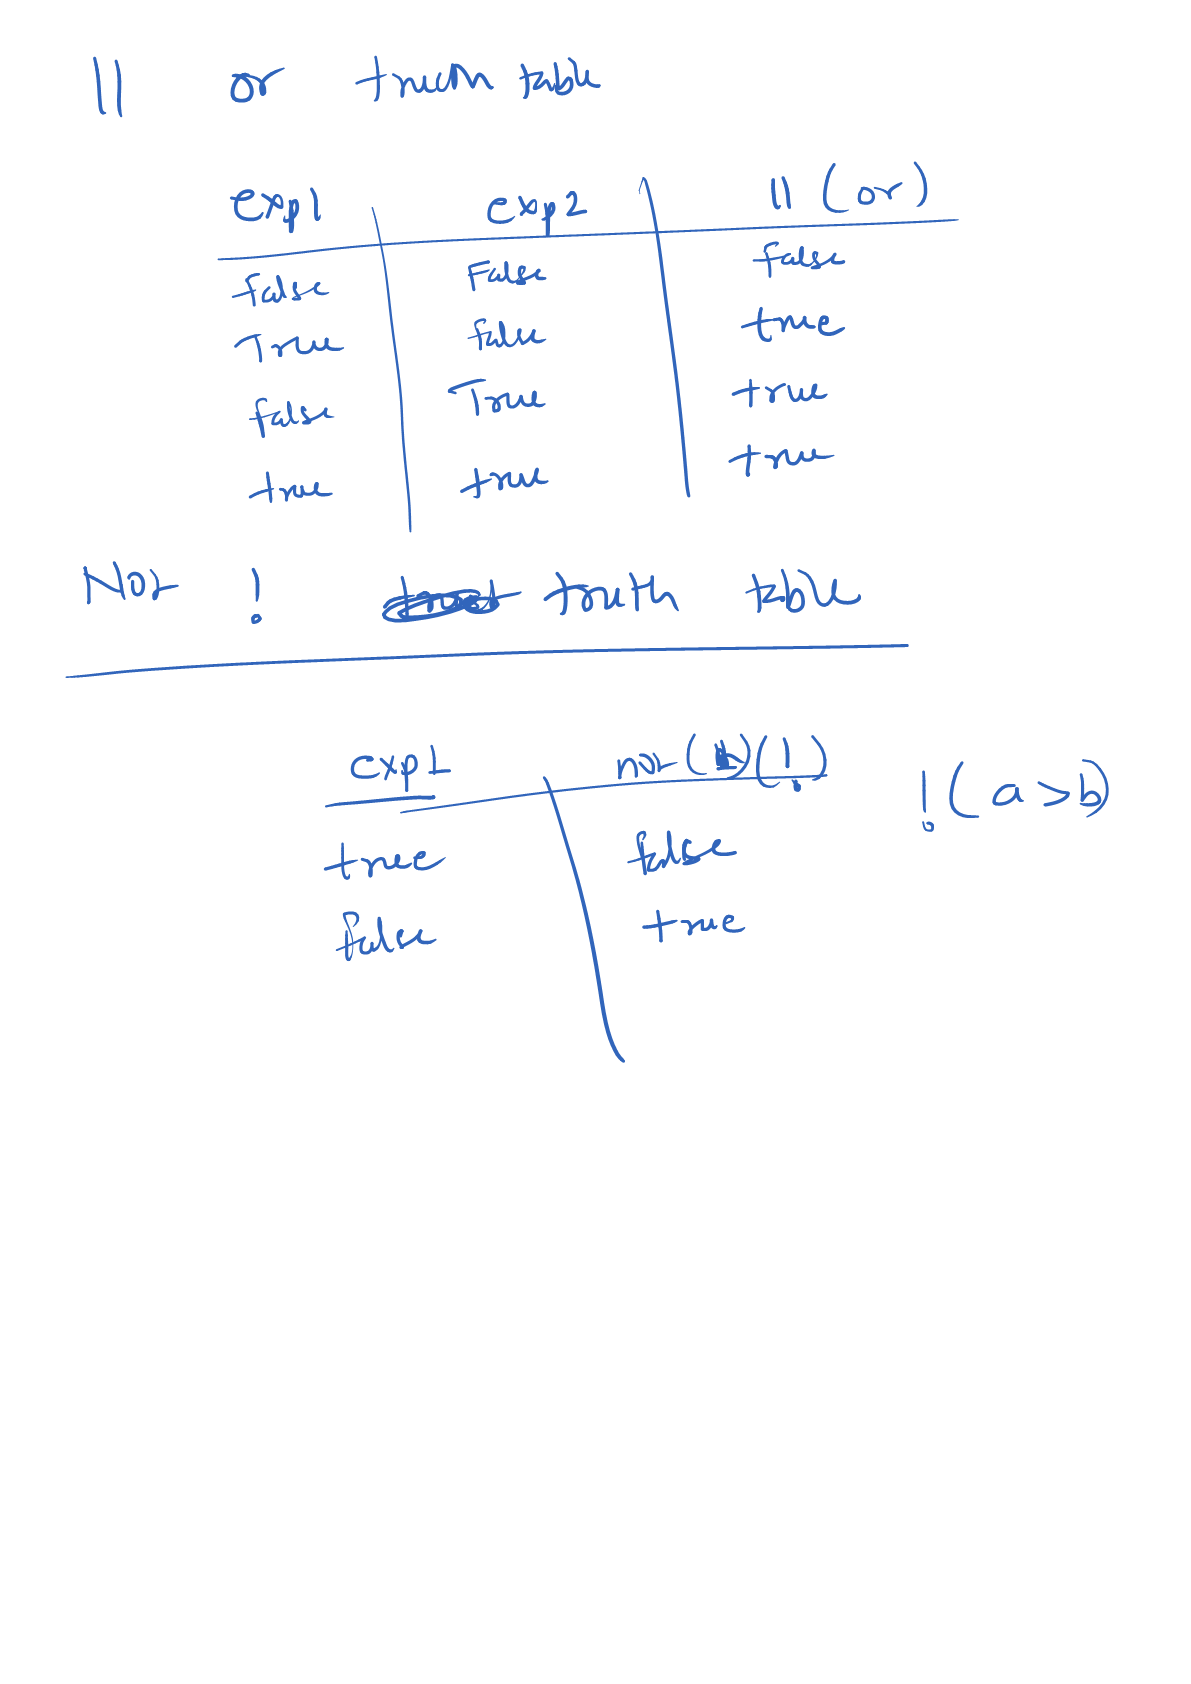 || or truth table
exp1 exp2 || (or)
false False false
True false true
false True true
true true true
Not ! truth table
exp1 not ( ) (!) !(a>b)
true false
false true